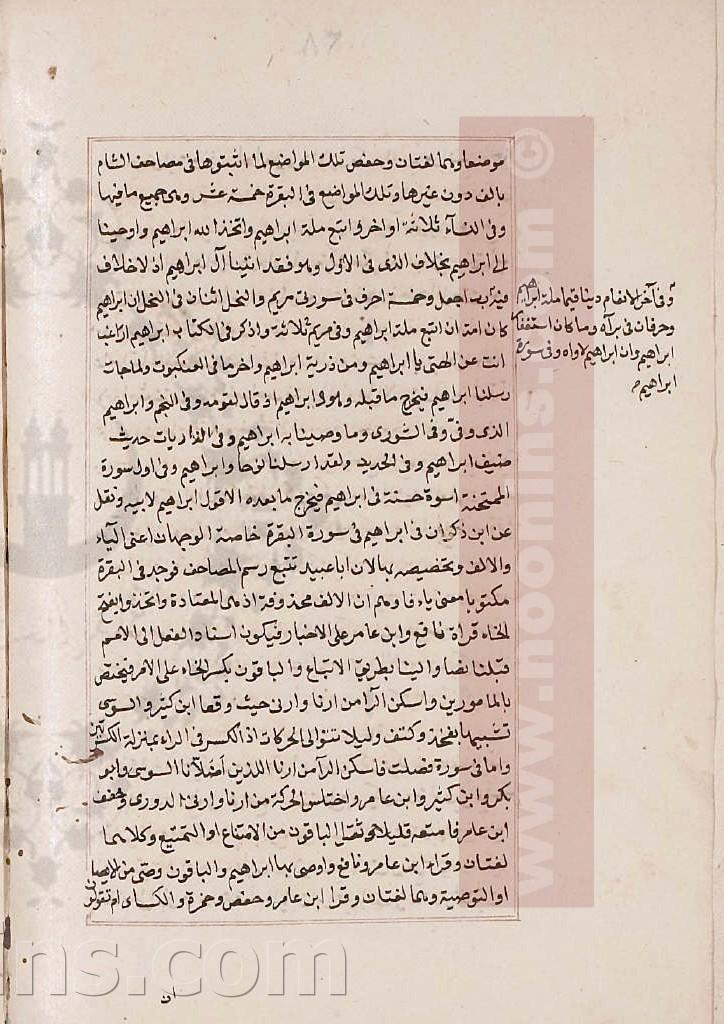 موضعا وهما لغتان وخص تلك المواضع لما اثبتوها فى مصاحف الشام
بالف دون غيرها وتلك المواضع فى البقرة خمسة عشر وهى جميع ما فيها
وفى النسآء ثلاثة اواخرى اتبع ملة ابراهيم واتخذ الله ابراهيم واوحينا
الى ابراهيم بخلاف الذى فى الاول وهو فقد اتينا آل ابراهيم اذ لا خلاف
احرف فى سورتى مريم والنحل اثنان فى النحل ان ابراهيم
كان امة ان اتبع ملة ابراهيم وفى مريم ثلاثة واذكر فى الكتاب ابراهيم اراغب
انت عن الهتى يا ابراهيم ومن ذرية ابراهيم واخر ما فى العنكبوت ولما جات
رسلنا ابراهيم فيخرج ما قبله وهو وابراهيم اذ قال لقومه وفى النجم وابراهيم
الذى وفىّ وفى الشورى وما وصينا به ابراهيم وفى الذاريات حديث
ضيف ابراهيم وفى الحديد ولقد ارسلنا نوحا وابراهيم وفى اول سورة
الممتحنة اسوة حسنة فى ابراهيم فيخرج ما بعده الا قول ابراهيم لابيه ونقل
عن ابن ذكوان فى ابراهيم فى سورة البقرة خاصة الوجهان اعنى اليآء
والالف وتخصيصه بها لان ابا عبيد تتبع رسم المصاحف فوجد فى البقرة
مكتوبا بغير ياء الالف محذوفة اذ هى المعتادة واتخذوا بفتح
الخاء قراة نافع وابن عامر على الاخبار فيكون اسناد الفعل الى الامم
قبلنا نصا والينا بطريق الاتباع والباقون بكسر الخاء على الامر فيختص
بالمامورين واسكن الرا من ارنا وارنى حيث وقعا ابن كثير والسوسى
تشبيها بفخذ وكتف وليلا تتوالى الحركات اذ الكسر فى الراء بمنزلة الكسرتين
واما فى سورة فصلت فاسكن الرآ من ارنا اللذين اضلآنا السوسى وابو
بكر وابن كثير وابن عامر واختلس الحركة من ارنا وارنى الدورى وخفف
ابن عامر فامتعه قليلا وثقل الباقون من الامتاع او التمتيع وكلاهما
لغتان وقرا ابن عامر ونافع واوصى بها ابراهيم والباقون ووصى من الايصا
او التوصية وهما لغتان وقرا ابن عامر وحفص وحمزة والكساى ام تقولون
ان
وفى آخر الانعام دينا قيما ملة ابراهيم
وحرفان فى براه وما كان استغفار
ابراهيم وان ابراهيم لاواه وفى سورة
ابراهيم
©
www.noormins.com
ns.com